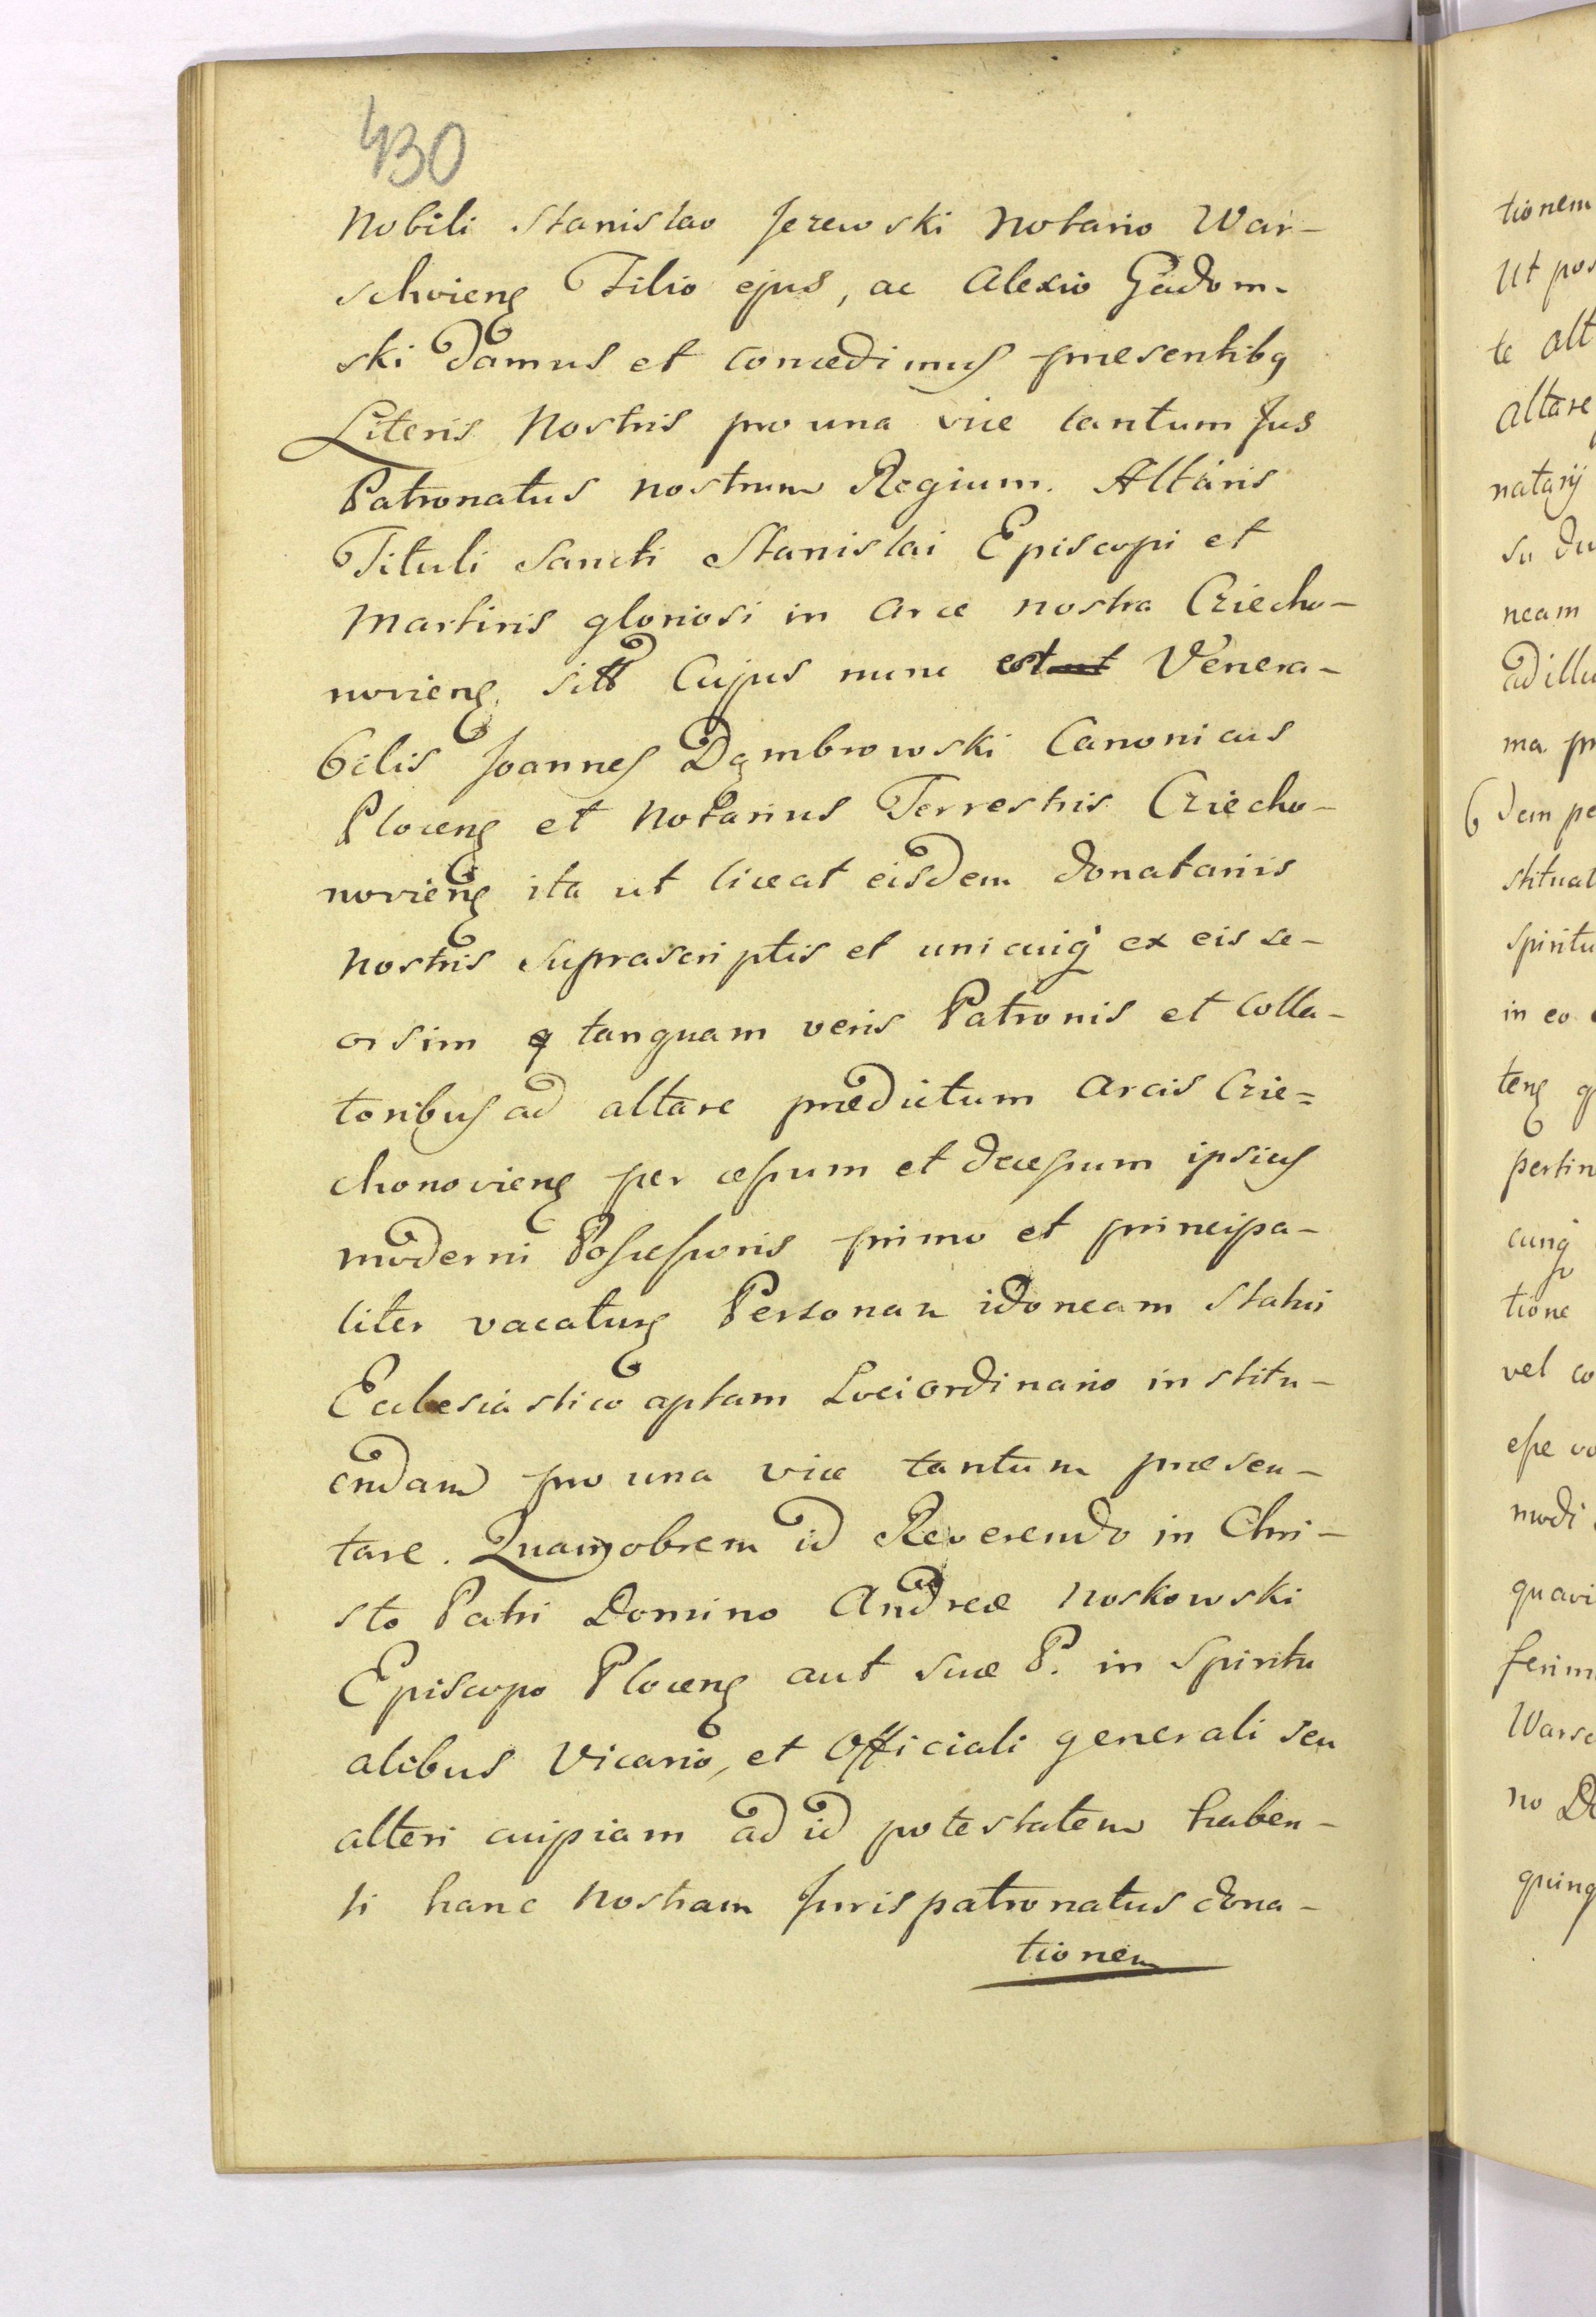 430
Nobili Stanislao Jezewski Notario War-
schvieng Filio ejus, ac Alexio Gadom-
ski damus et concedimus præsentibq
Literis Nostris pro una vice tantum Jus
Patronatus nostrum Regium. Altaris
Tituli Sancti Stanislai Episcopi et
Martiris gloriosi in Arce nostra Cziecho-
novieng, Cujus nunc est Venera-
bilis Joannes Dąmbrowski Canonicus
Ploceng et Notarius Terrestris Cziecho-
novieng ita ut liceat eisdem donatariis
Nostris suprascriptis et unicuiq ex eis se-
orsim tanquam veris Patronis et Colla-
toribus ad altare prædictum Arcis Czie=
chonovieng per cessum et decessum ipsius
moderni Possessoris primo et principa-
liter vacaturg Personam idoneam Statui
Ecclesiastico aptam Loci ordinario institu-
endam pro una vice tantum præsen-
tare. Quamobrem id Reverendo in Chri-
sto Patri Domino Andreæ Noskowski
Episcopo Ploceng aut suæ P. in Spiritu
alibus Vicario, et Officiali generali seu
alteri cuipiam ad id potestatem haben-
ti hanc Nostram Jurispatronatus dona-
tionem
tionem
Ut pos
te alt
altare
natarij
su du
neam
ad illu
ma pr
dem pe
stituat
Spiritu
in eo
teng q
pertin
cuiq
tione
vel co
esse vo
modi
quavi
ferim
Warsc
no Do
quinq